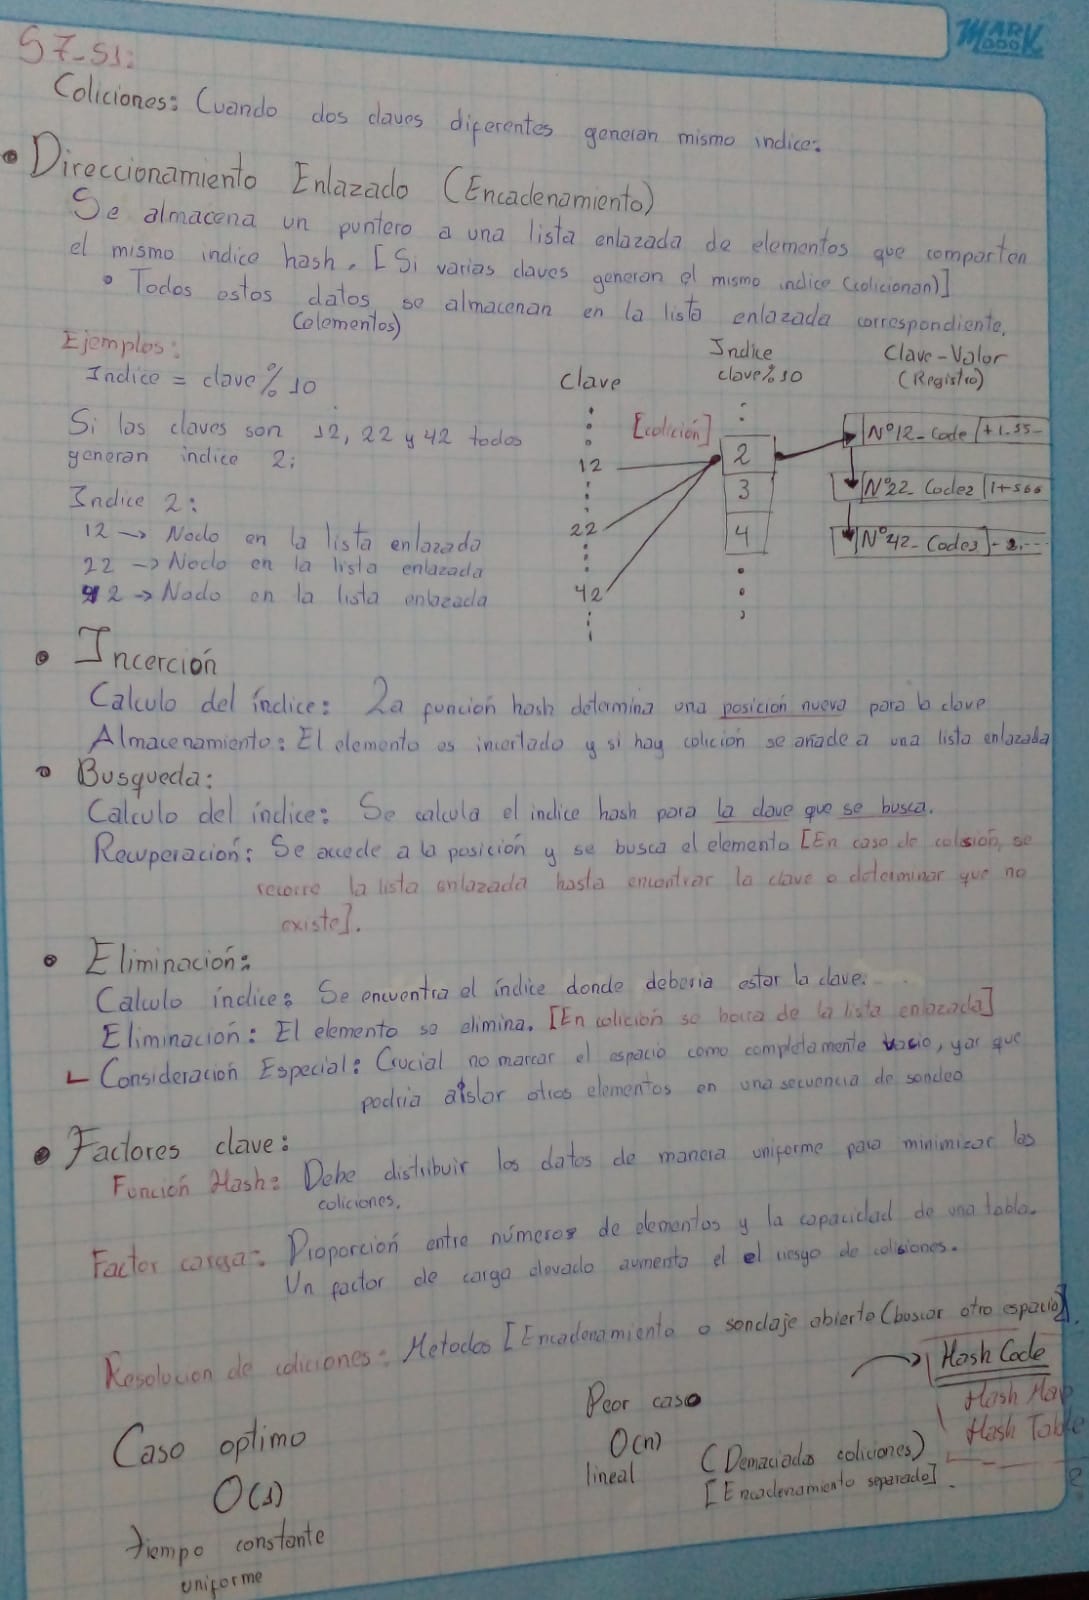 MARK BOOK
S7-S1:
Coliciones: Cuando dos claves diferentes generan mismo indice.
• Direccionamiento Enlazado (Encadenamiento)
Se almacena un puntero a una lista enlazada de elementos que comparten
el mismo indice hash. [Si varias claves generan el mismo indice (colicionan)]
• Todos estos datos se almacenan en la lista enlazada correspondiente.
(elementos)
Ejemplos:
Indice = clave % 10
Si las claves son 12, 22 y 42 todos
generan indice 2:
Indice 2:
12 → Nodo en la lista enlazada
22 → Nodo en la lista enlazada
42 → Nodo en la lista enlazada
Clave
12
22
42
[colición]
Indice
clave%10
2
3
4
Clave-Valor
(Registro)
N°12-Code +1.55-
N°22-Code2 1+566
N°42-Code3
• Incerción
Calculo del índice: La función hash determina una posición nueva para la clave
Almacenamiento: El elemento es incertado y si hay colición se añade a una lista enlazada
• Busqueda:
Calculo del índice: Se calcula el indice hash para la clave que se busca.
Recuperación: Se accede a la posición y se busca el elemento [En caso de colisión, se
recorre la lista enlazada hasta encontrar la clave o determinar que no
existe].
• Eliminación:
Calculo índice: Se encuentra el índice donde deberia estar la clave.
Eliminación: El elemento se elimina. [En colición se borra de la lista enlazada]
Consideración Especial: Crucial no marcar el espacio como completamente vacio, yar que
podria aislar otros elementos en una secuencia de sondeo
• Factores clave:
Función Hash: Debe distribuir los datos de manera uniforme para minimizar las
coliciones.
Factor carga: Proporción entre números de elementos y la capacidad de una tabla.
Un factor de carga elevado aumenta el el riesgo de colisiones.
Resolucion de coliciones: Metodos [Encadenamiento o sondaje abierto (buscar otro espacio)].
Hash Code
Hash Map
Hash Table
Caso optimo
O(1)
tiempo constante
uniforme
Peor caso
O(n)
lineal
(Demaciadas coliciones)
[Encadenamiento separado].